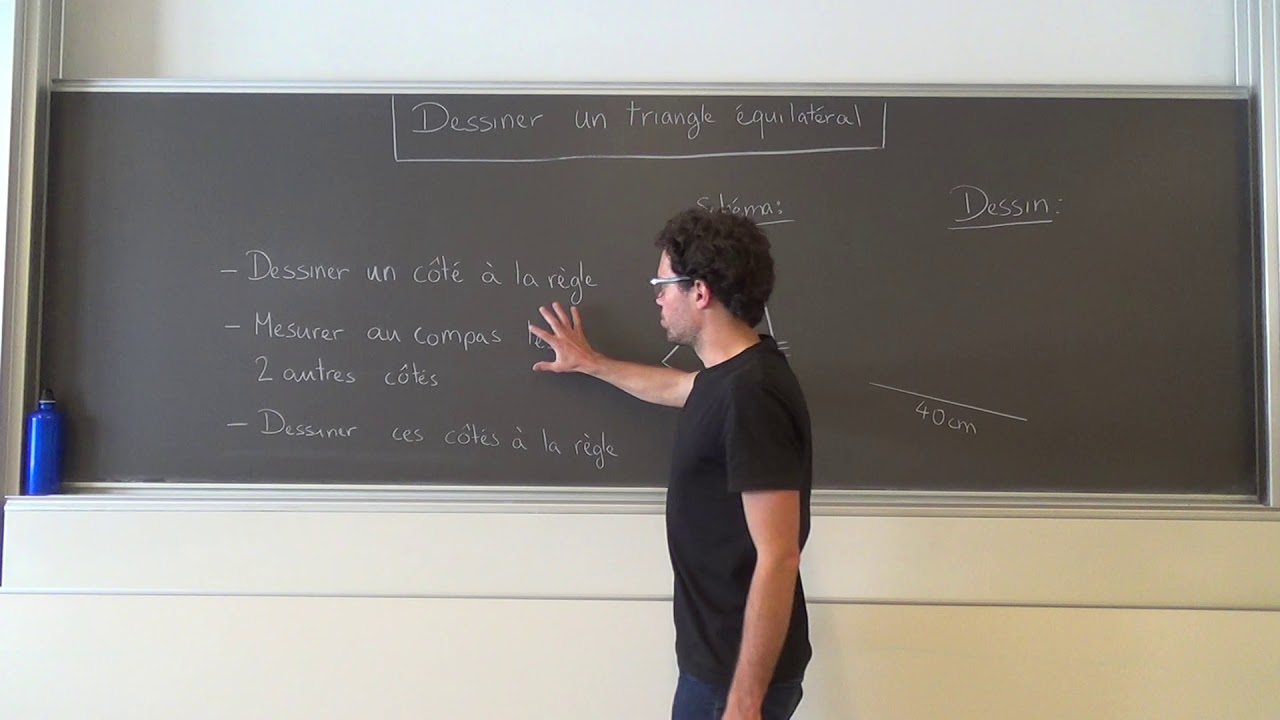 Dessiner un triangle équilatéral
Schéma:
Dessin:
- Dessiner un côté à la règle
- Mesurer au compas
2 autres côtés
- Dessiner ces côtés à la règle
40cm